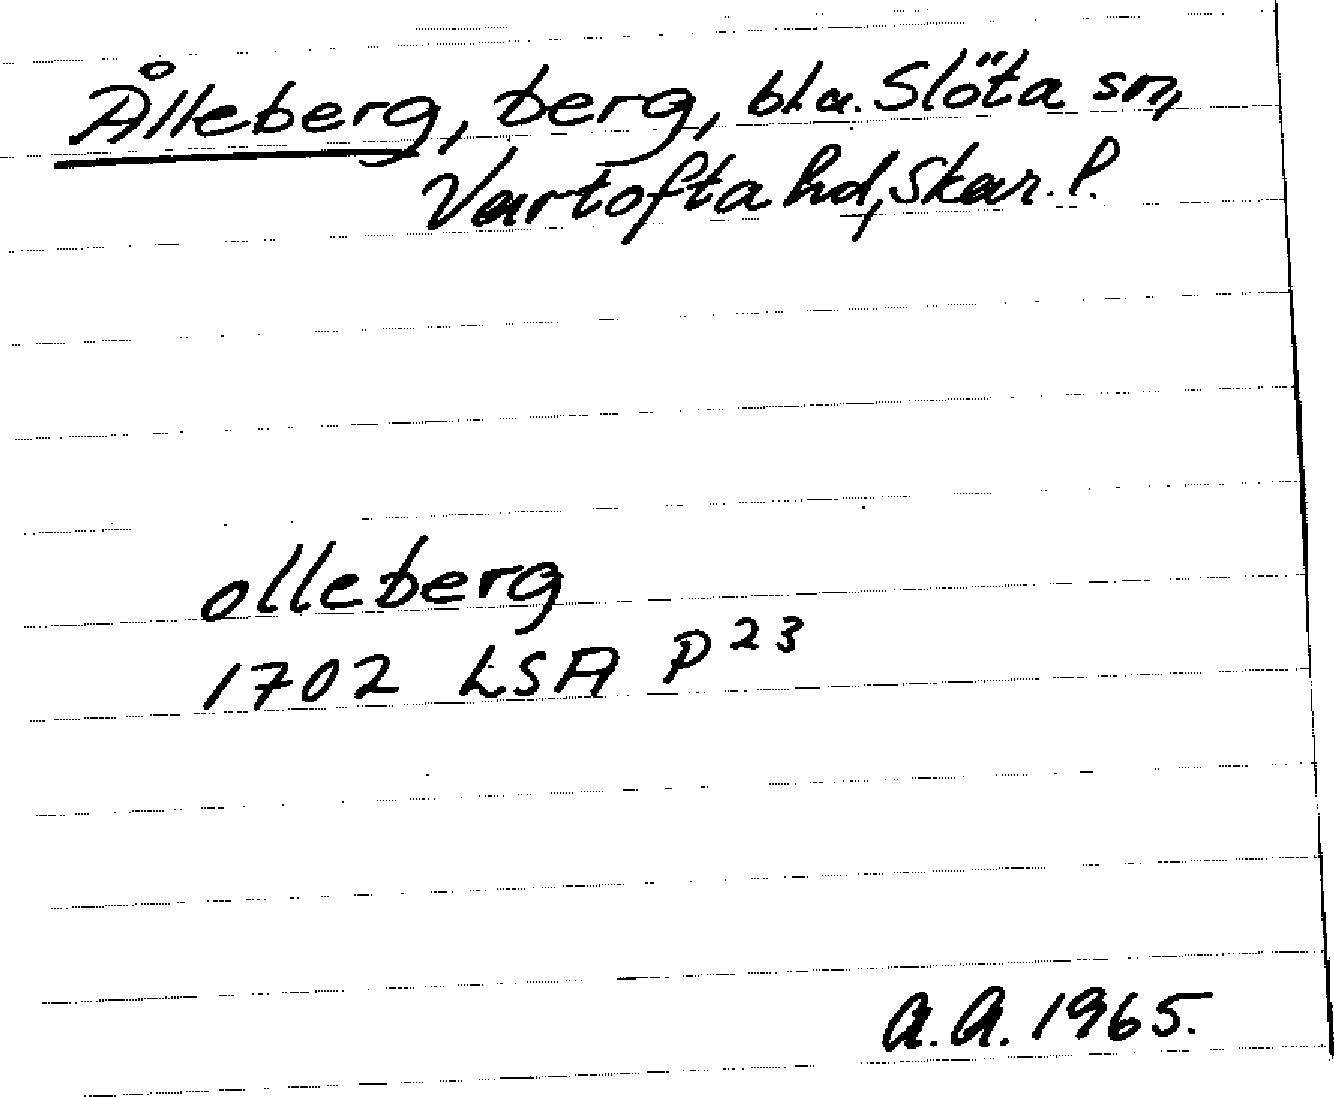 Ålleberg, berg, bl.a. Slöta sn,
Vartofta hd, Skar. l.
olleberg
1702 LSA P 23
A.A. 1965.